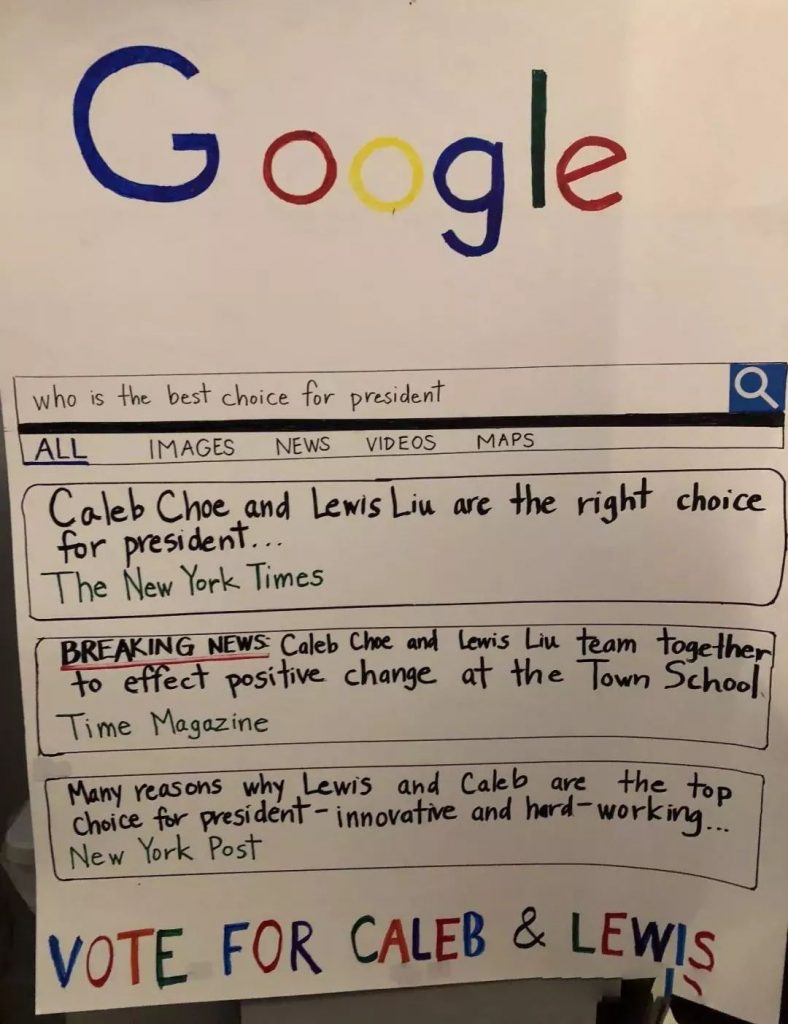 Google
who is the best choice for president
ALL IMAGES NEWS VIDEOS MAPS
Caleb Choe and Lewis Liu are the right choice
for president...
The New York Times
BREAKING NEWS: Caleb Choe and Lewis Liu team together
to effect positive change at the Town School.
Time Magazine
Many reasons why Lewis and Caleb are the top
choice for president - innovative and hard-working...
New York Post
VOTE FOR CALEB & LEWIS